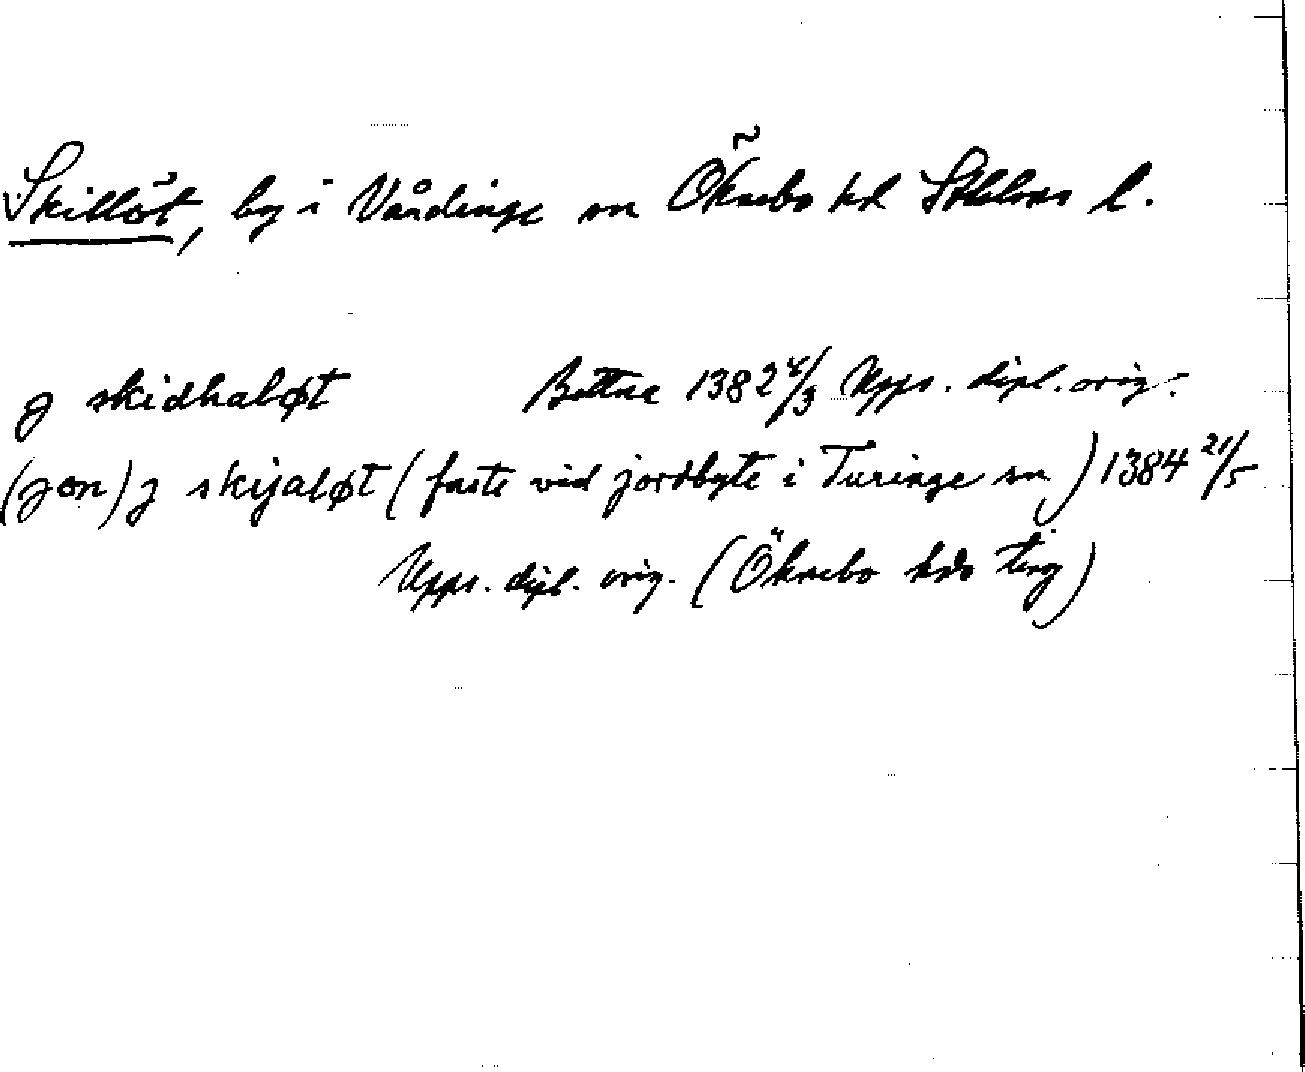 Skillöt, by i Vårdinge sn Öknebo hd Sthlms l.
j skidhaløt Bettna 1382 4/3 Upps. dipl. orig.
(jon) j skijaløt (faste vid jordbyte i Turinge sn) 1384 21/5
Upps. dipl. orig. (Öknebo hds ting)